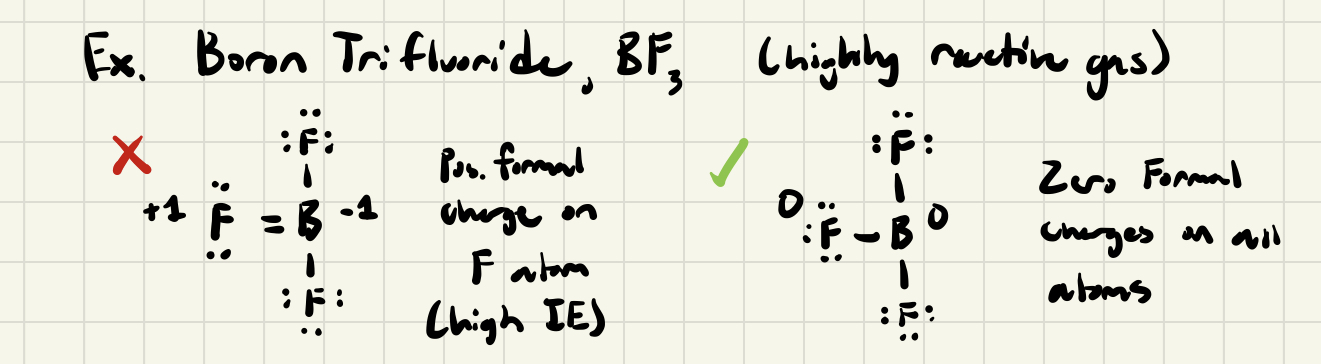 Ex. Boron Trifluoride, BF3 (highly reactive gas)
:F:
+1 F = B -1
:F:
Pos. formal
charge on
F atom
(high IE)
:F:
0 :F - B 0
:F:
Zero Formal
charges on all
atoms